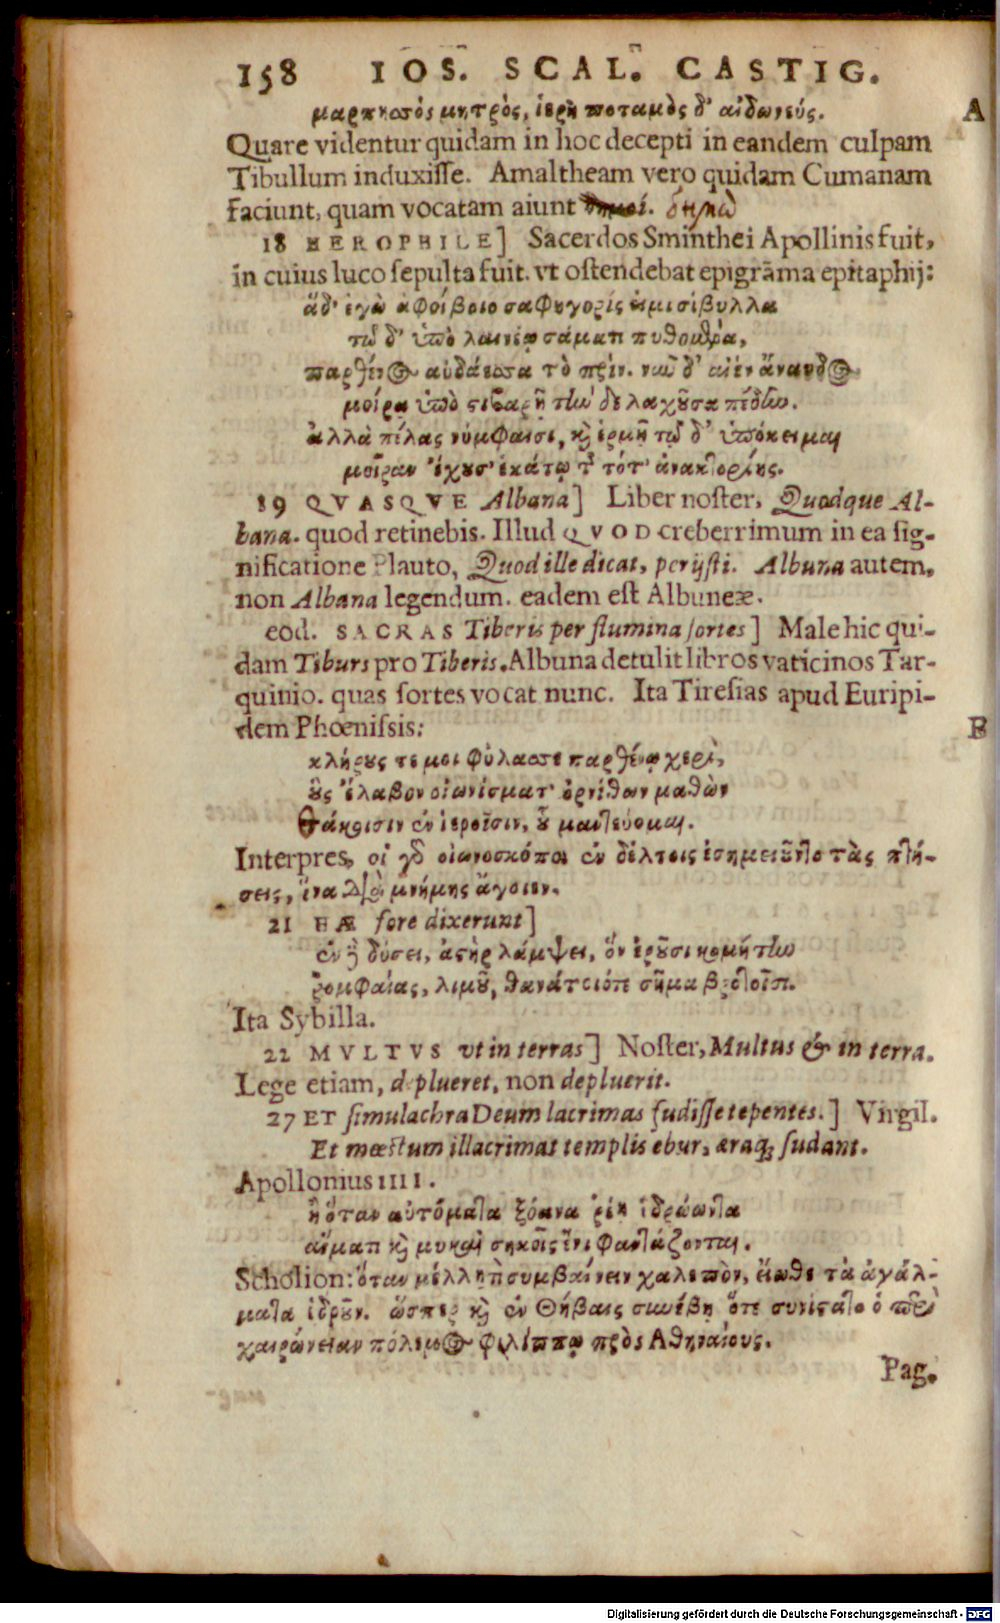 158 IOS. SCAL. CASTIG.
μαρπησσὸς μητρὸς, ἱερὴ ποταμὸς δ' αἰδωνεύς.
A
Quare videntur quidam in hoc decepti in eandem culpam
Tibullum induxisse. Amaltheam vero quidam Cumanam
faciunt, quam vocatam aiunt
18 HEROPHILE] Sacerdos Sminthei Apollinis fuit,
in cuius luco sepulta fuit. vt ostendebat epigrāma epitaphij:
ἅδ' ἐγὼ ἁ φοίβοιο σαφηγορίς εἰμι σίβυλλα
τῷ δ' ὑπὸ λαϊνέῳ σάματι
παρθένος αὐδάεσσα τὸ πρίν. νῦν δ' αἰὲν ἄναυδος
μοίρᾳ ὑπὸ στιβαρῇ τὴν δε λαχοῦσα πέδην.
ἀλλὰ πέλας νύμφαισι, καὶ ἑρμῇ τῷ δ' ὑπόκειμαι
μοῖραν ἔχουσ' ἑκάτῳ τῆς τότ' ἀνακτορίης.
19 QVASQVE Albana] Liber noster, Quodque Al-
bana. quod retinebis. Illud QVOD creberrimum in ea sig-
nificatione Plauto, Quod ille dicat, perijsti. Albuna autem,
non Albana legendum. eadem est Albuneæ.
eod. SACRAS Tiberis per flumina sortes] Male hic qui-
dam Tiburs pro Tiberis. Albuna detulit libros vaticinos Tar-
quinio. quas sortes vocat nunc. Ita Tiresias apud Euripi-
dem Phœnissis:
B
κλήρους τε μοι φύλασσε παρθένῳ χερὶ,
οὓς ἔλαβον οἰωνίσματ' ὀρνίθων μαθὼν
θάκοισιν ἐν ἱεροῖσιν, οὗ μαντεύομαι.
Interpres, οἱ γὰρ οἰωνοσκόποι ἐν δέλτοις ἐσημειοῦντο τὰς πτή-
σεις, ἵνα διὰ μνήμης ἄγοιεν.
21 HÆ fore dixerunt]
ἐν δὲ δύσει, ἀστὴρ λάμψει, ὃν ἐροῦσι κομήτην
ῥομφαίας, λιμοῦ, θανάτοιό τε σῆμα βροτοῖσι.
Ita Sybilla.
22 MVLTVS vt in terras] Noster, Multus & in terra.
Lege etiam, deplueret, non depluerit.
27 ET simulachra Deum lacrimas fudisse tepentes.] Virgil.
Et mœstum illacrimat templis ebur, æraq; sudant.
Apollonius IIII.
ἢ ὅταν αὐτόματα ξόανα ῥέῃ ἱδρώοντα
αἵματι καὶ μυκαὶ σηκοῖς ἔνι φαντάζονται.
Scholion: ὅταν μέλλῃ τι συμβαίνειν χαλεπὸν, εἴωθε τὰ ἀγάλ-
ματα ἱδροῦν. ὥσπερ καὶ ἐν Θήβαις συνέβη ὅτε συνίστατο ὁ περὶ
χαιρώνειαν πόλεμος φιλίππῳ πρὸς Ἀθηναίους.
Pag.
Digitalisierung gefördert durch die Deutsche Forschungsgemeinschaft - DFG